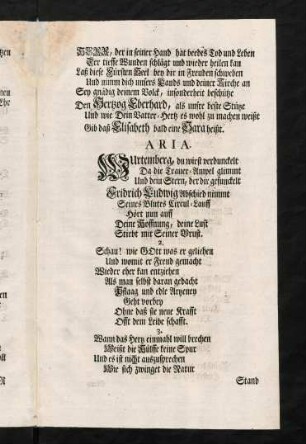 HERR, der in seiner Hand hat beedes Tod und Leben
Der tieffe Wunden schlägt und wieder heilen kan
Laß diese Fürsten Seel bey dir in Freuden schweben
Und nimm dich unsers Lands und deiner Kirche an
Sey gnädig deinem Volck, insonderheit beschütze
Den Hertzog Eberhard, als unsre beste Stütze
Und wie Dein Vatter-Hertz es wohl zu machen weißt
Gib daß Elisabeth bald eine Sara heißt.
ARIA.
Würtemberg, du wirst verdunckelt
Da die Trauer-Ampel glimmt
Und dein Stern, der dir gefunckelt
Fridrich Ludwig Abschied nimmt
Seines Blutes Circul-Lauff
Hört nun auff
Deine Hoffnung, deine Lust
Stirbt mit Seiner Brust.
2.
Schau! wie GOtt was er geliehen
Und womit er Freud gemacht
Wieder eher kan entziehen
Als man selbst daran gedacht
Pflaag und edle Artzeney
Geht vorbey
Ohne daß sie neue Krafft
Offt dem Leibe schafft.
3.
Wann das Hertz einmahl will brechen
Weißt die Hülffe keine Spur
Und es ist nicht auszusprechen
Wie sich zwinget die Natur
Stand